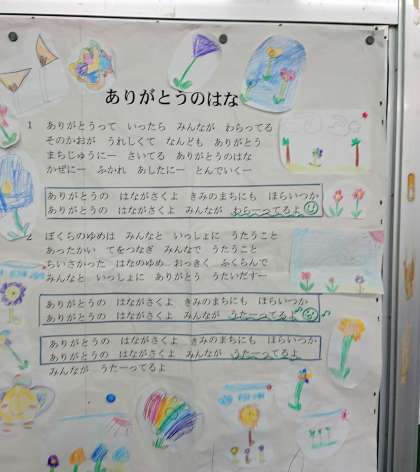 ありがとうのはな
1 ありがとうって いったら みんなが わらってる
そのかおが うれしくて なんども ありがとう
まちじゅうにー さいてる ありがとうのはな
かぜにー ふかれ あしたにー とんでいくー
ありがとうの はながさくよ きみのまちにも ほらいつか
ありがとうの はながさくよ みんなが わらーってるよ
2 ぼくらのゆめは みんなと いっしょに うたうこと
あったかい てをつなぎ みんなで うたうこと
ちいさかった はなのゆめ おっきく ふくらんで
みんなと いっしょに ありがとう うたいだすー
ありがとうの はながさくよ きみのまちにも ほらいつか
ありがとうの はながさくよ みんなが うたーってるよ
ありがとうの はながさくよ きみのまちにも ほらいつか
ありがとうの はながさくよ みんなが うたーってるよ
みんなが うたーってるよ